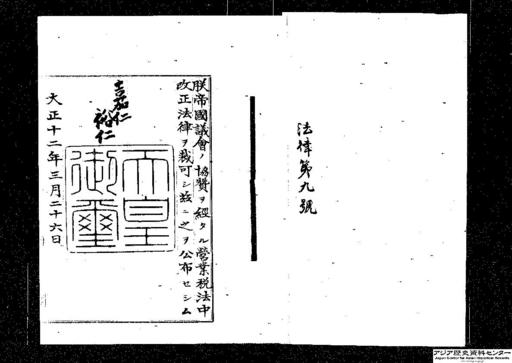 法律第九號
朕帝國議會ノ協贊ヲ經タル營業稅法中
改正法律ヲ裁可シ茲ニ之ヲ公布セシム
嘉仁
裕仁
天皇
御璽
大正十二年三月二十六日
アジア歴史資料センター
Japan Center for Asian Historical Records